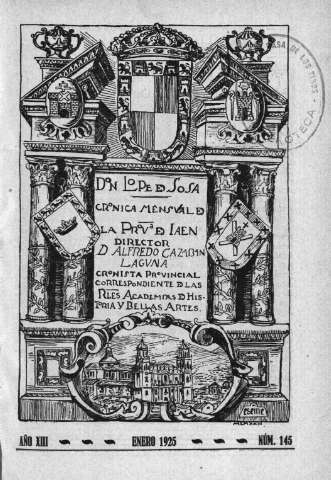 DON LOPE D SOSA
CRONICA MENSUAL D
LA PRVª D JAEN
DIRECTOR
D ALFREDO CAZABAN
LAGUNA
CRONISTA PROVINCIAL
CORRESPONDIENTE D LAS
RLES ACADEMIAS D HIS-
TORIA Y BELLAS ARTES.
AÑO XIII ENERO 1925 NÚM. 145